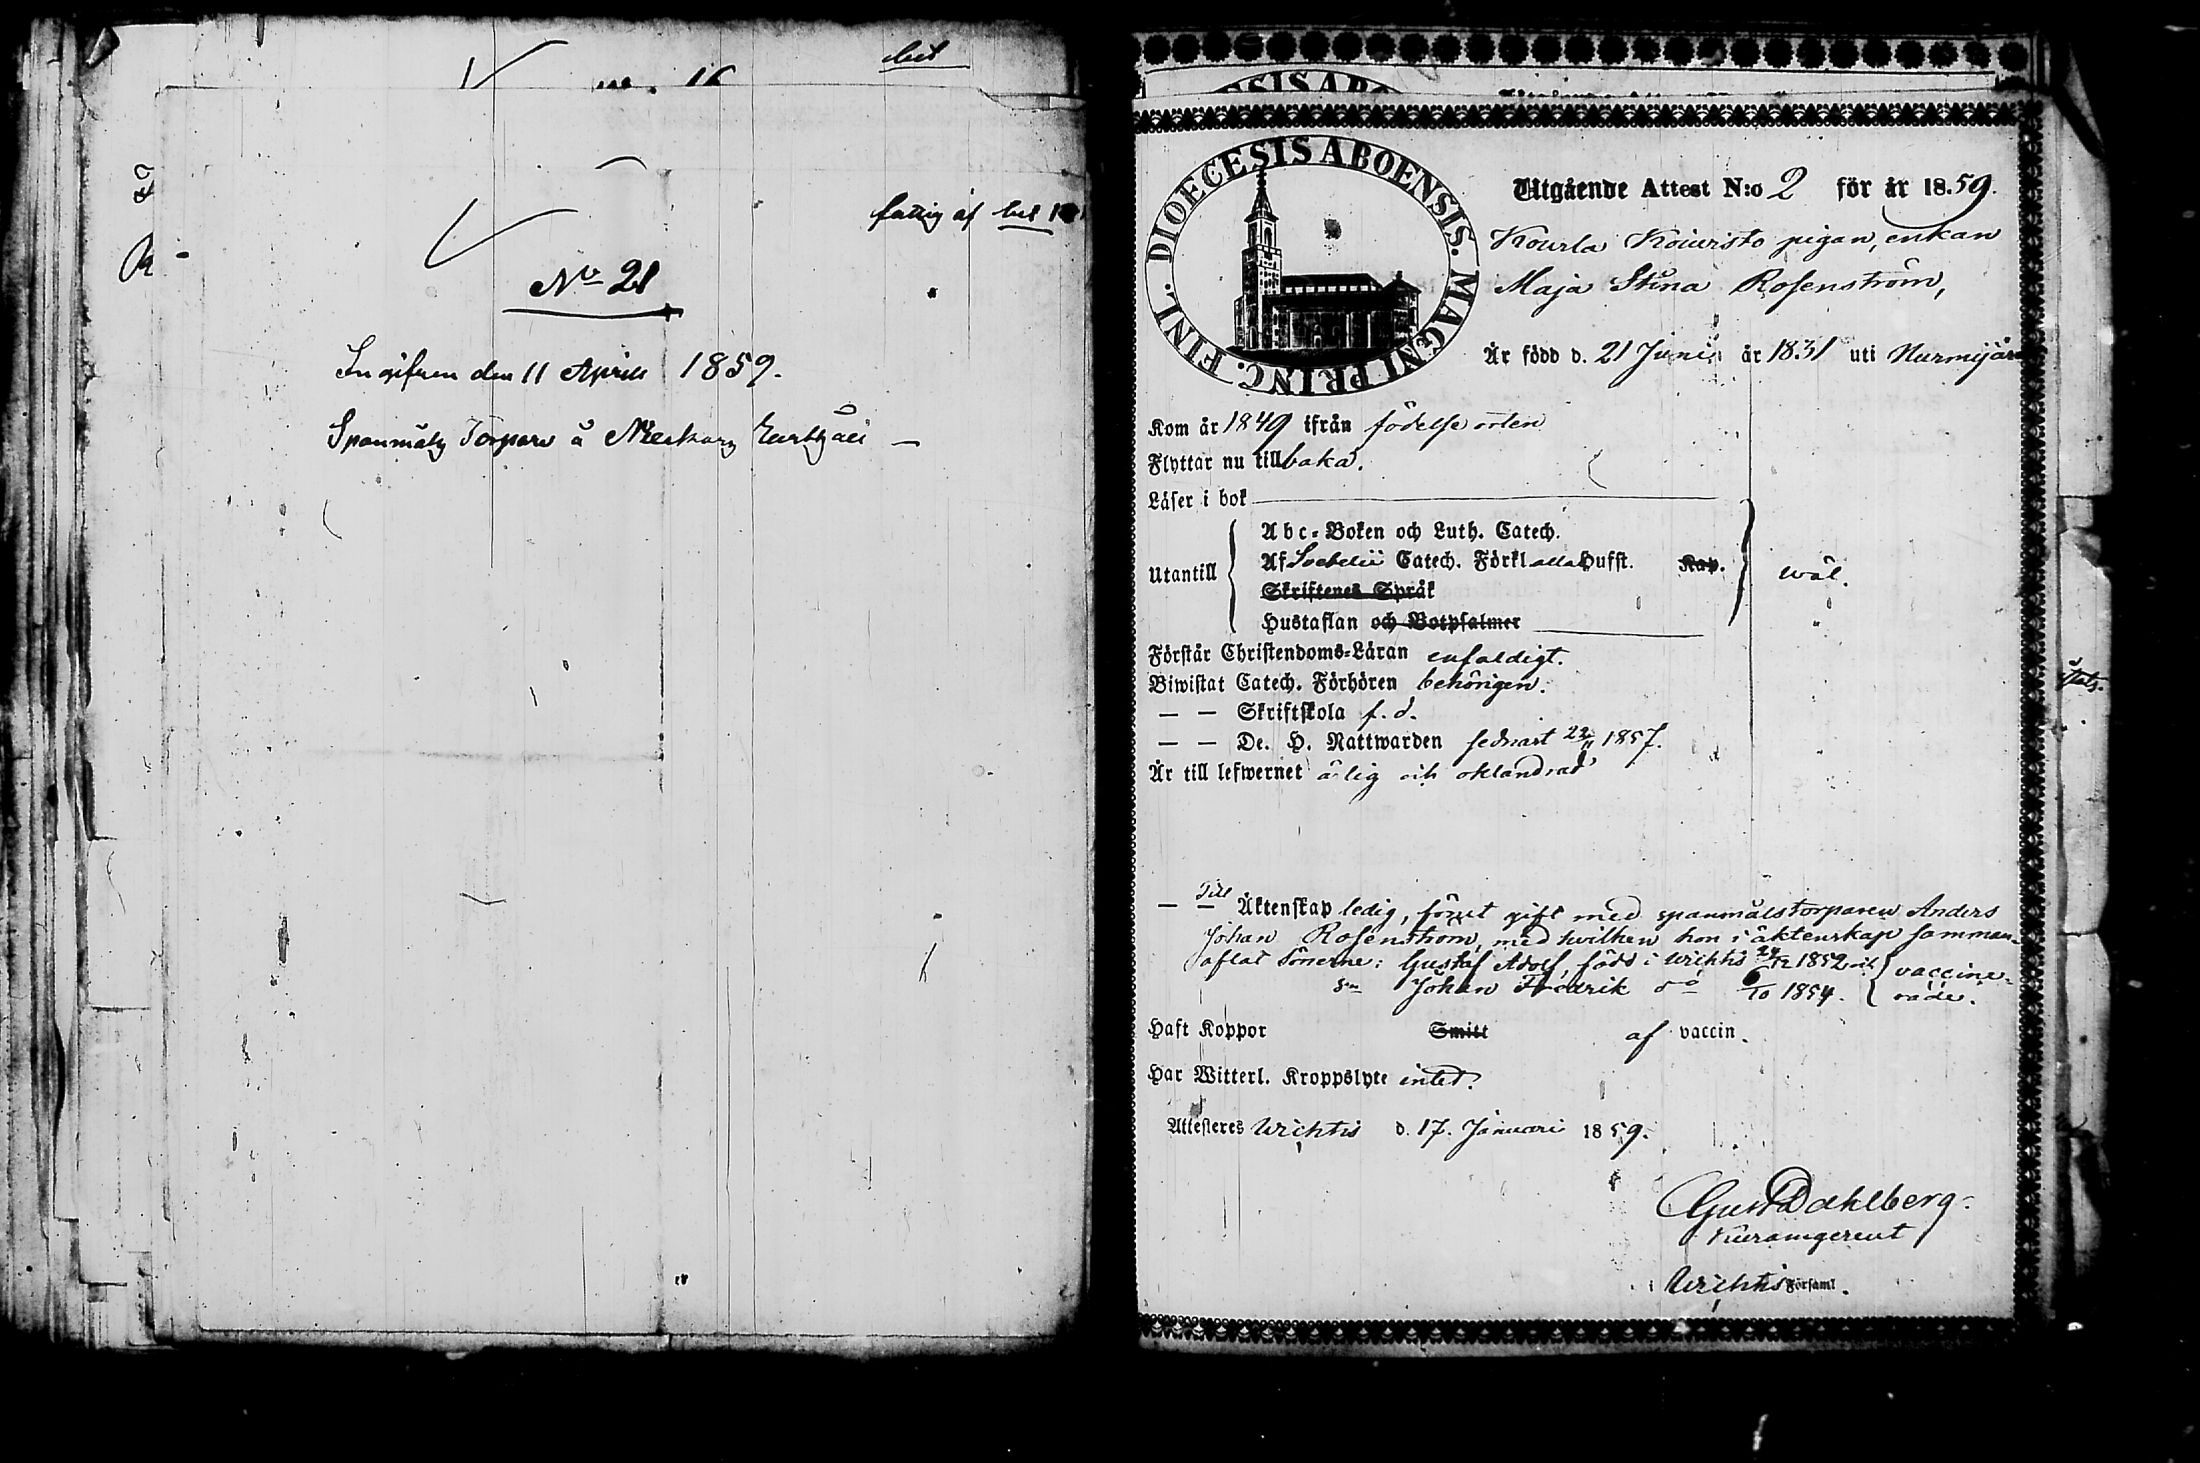 16
fattig af
No 21
Ingifven den 11 Aprill 1859.
Spanmåls Torpare å
DIOECESIS ABOENSIS. MAGNI PRINC. FINL.
Utgående Attest N:o 2 för år 18.59.
Kourla Koivisto pigan, enkan
Maja Stina Rosenström,
Är född d. 21 Juni år 1831 uti Nurmijär
Kom år 1849 ifrån födelse orten
Flyttar nu tillbaka.
Läser i bok
Utantill
Abc-Boken och Luth. Catech.
Af Svebelii Catech. Förkl alla Hufst. Kap.
Skriftenes Språk
Hustaflan och Botpsalmer
wäl.
Förstår Christendoms-Läran enfaldigt.
Biwistat Catech. Förhören behörigen.
— — Skriftskola f. d.
— — De. H. Nattwarden sednast 1857.
Är till lefwernet ärlig och oklandrad
— — Till Äktenskap ledig, förut gift med spanmålstorparen Anders
Johan Rosenström, med hvilken hon i äktenskap samman-
aflat Sönerne: Gustaf Adolf, född i Wichtis 24/12 1852 och
Johan Fredrik do 6/10 1854.
vaccine-
rade.
Haft Koppor Smitt af vaccin.
Har Witterl. Kroppslyte intet.
Attesteres Wichtis d. 17. Januari 1859.
Gust Dahlberg
Wichtis Församl.